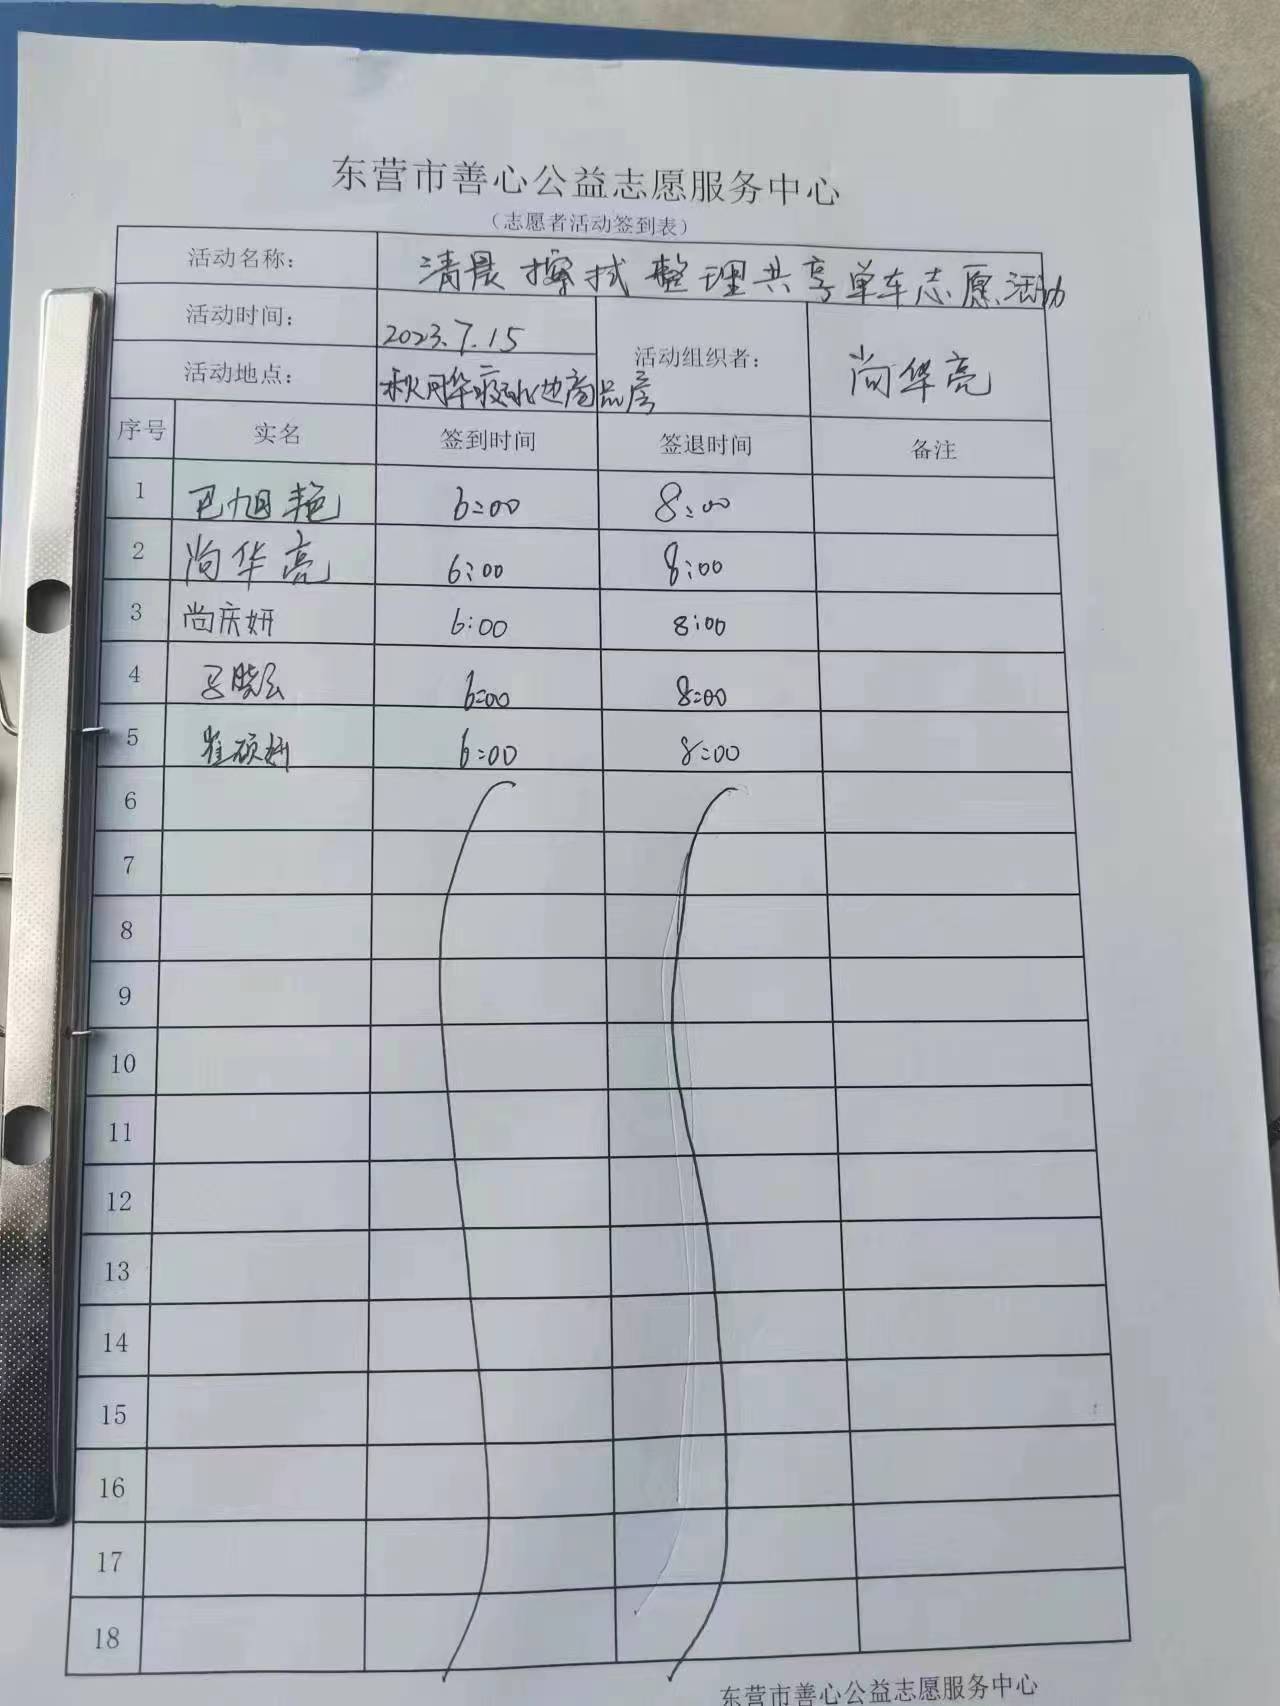 东营市善心公益志愿服务中心
（志愿者活动签到表）
活动名称： 清晨擦拭整理共享单车志愿活动
活动时间： 2023.7.15
活动组织者： 尚华亮
活动地点： 秋月华庭北边商品房
序号 实名 签到时间 签退时间 备注
1 巴旭艳 6:00 8:00
2 尚华亮 6:00 8:00
3 尚庆妍 6:00 8:00
4 晓 6:00 8:00
5 崔硕妍 6:00 8:00
6
7
8
9
10
11
12
13
14
15
16
17
18
东营市善心公益志愿服务中心